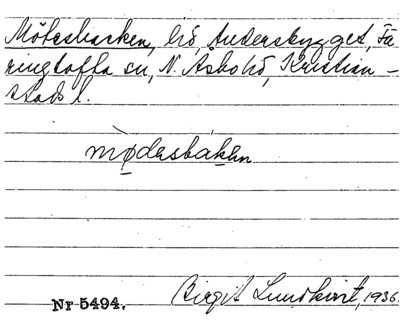 Mötesbacken, hö, Anderskygget, Fä
ringtofta sn, N. Åsbo hd, Kristian-
stads l.
mødesbáken
Nr 5494.
Birgit Lundkvist, 1936.